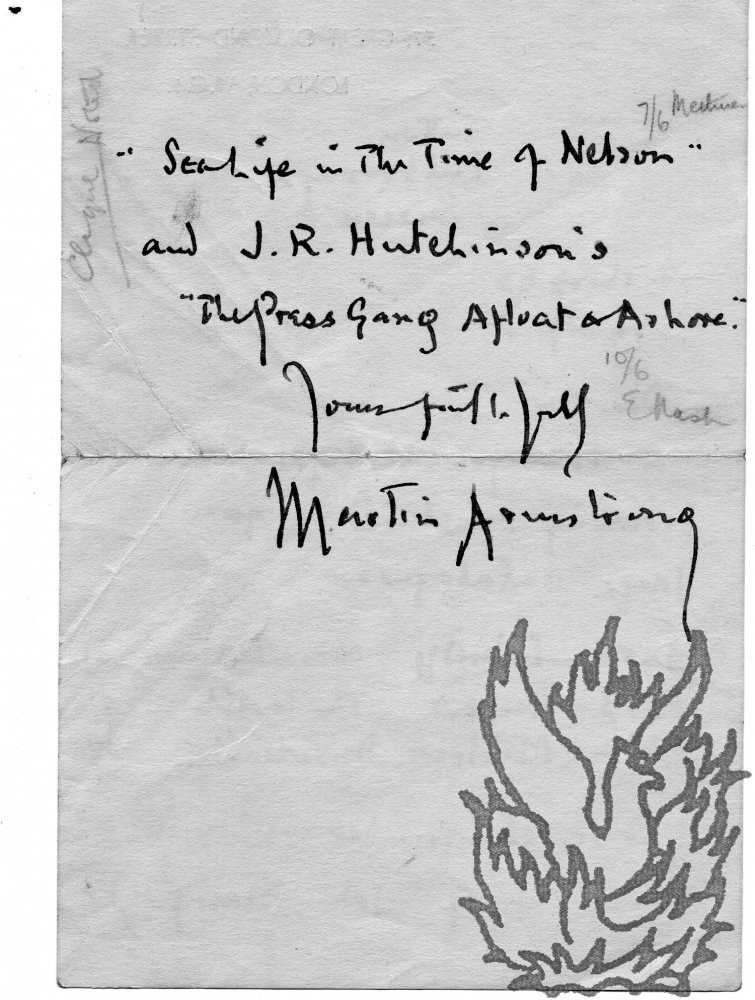 7/6
"Sea Life in The Time of Nelson"
and J. R. Hutchinson's
"The Press Gang Afloat & Ashore."
10/6
E Nash
Yours faithfully
Martin Armstrong